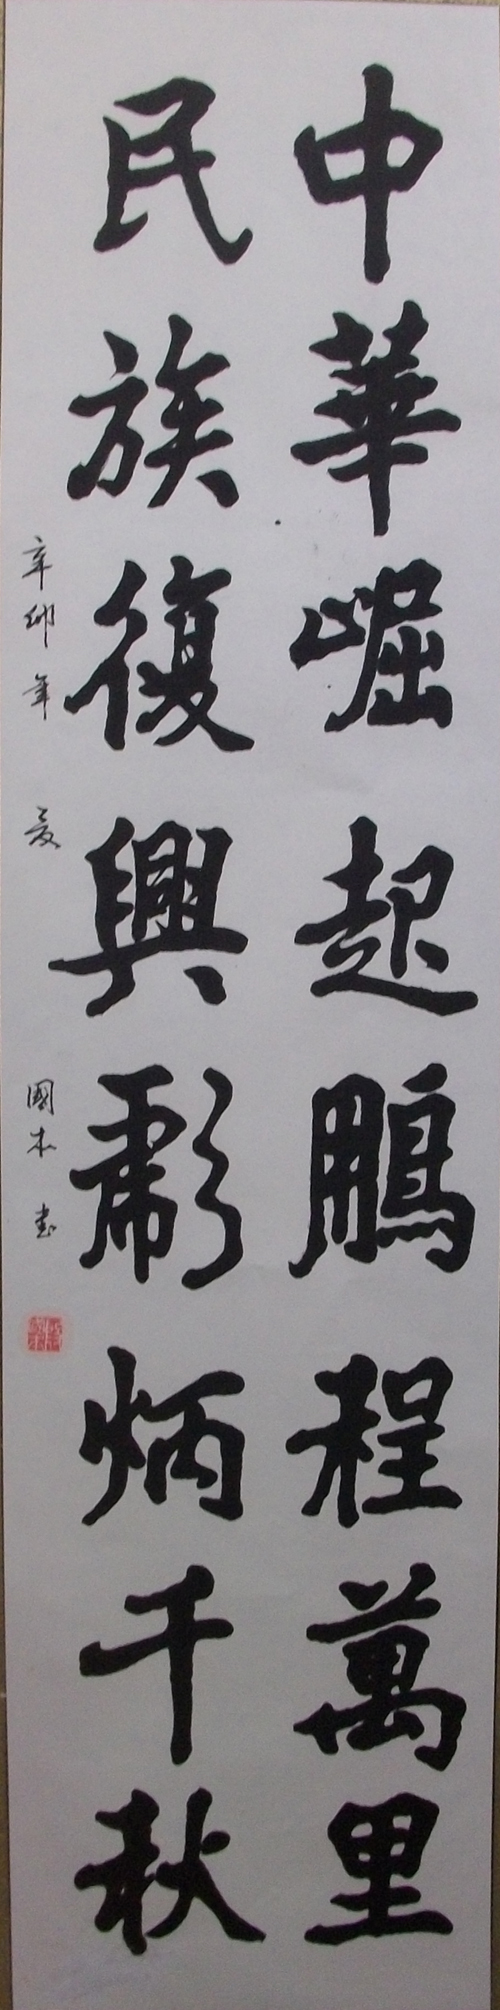 中華崛起鵬程萬里
民族復興彪炳千秋
辛卯年 夏 國本 書